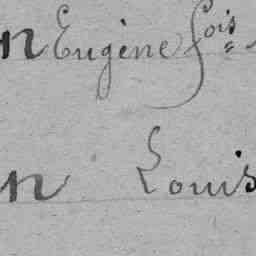 n Eugène fois
n Louis